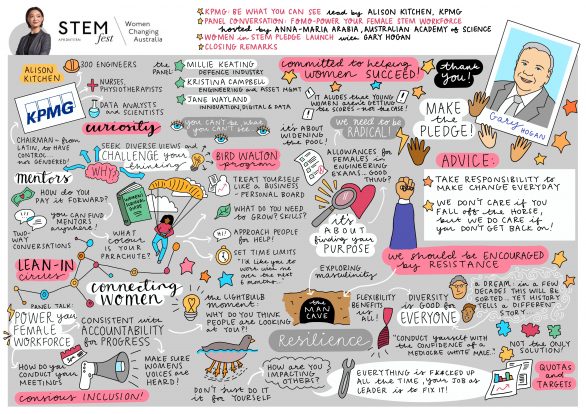 STEM
fest
Women
Changing
Australia
KPMG: BE WHAT YOU CAN SEE lead by ALISON KITCHEN, KPMG
PANEL CONVERSATION: FOMO-POWER YOUR FEMALE STEM WORKFORCE
hosted by ANNA-MARIA ARABIA, AUSTRALIAN ACADEMY of SCIENCE
WOMEN in STEM PLEDGE LAUNCH with GARY HOGAN
CLOSING REMARKS
ALISON
KITCHEN
300 ENGINEERS
NURSES,
PHYSIOTHERAPISTS
DATA ANALYSTS
and SCIENTISTS
KPMG
curiosity
CHAIRMAN - from
LATIN, to HAVE
CONTROL...
not GENDERED!
the
PANEL
MILLIE KEATING
DEFENCE INDUSTRY
KRISTINA CAMPBELL
ENGINEERING and ASSET MGMT
JANE WATLAND
INNOVATION, DIGITAL & DATA
you CAN'T be what
you CAN'T see
SEEK DIVERSE VIEWS and
CHALLENGE your
thinking
WHY?
BIRD WALTON
program
mentors
HOW do YOU
PAY it FORWARD?
you can FIND
MENTORS
anywhere!
TWO-WAY
CONVERSATIONS
SURVIVAL
GUIDE
WHAT
COLOUR
is YOUR
PARACHUTE?
TREAT YOURSELF
LIKE a BUSINESS
- PERSONAL BOARD
WHAT DO YOU NEED
to GROW? SKILLS?
Hi
APPROACH PEOPLE
for HELP!
SET TIME LIMITS
"I'd like you to
work with me
over the next
6 months..."
LEAN-IN
circles
connecting
WOMEN
committed to helping
WOMEN SUCCEED!
IT ALUDES that YOUNG
WOMEN aren't GETTING
the SCORES - NOT the CASE!
it's ABOUT
WIDENING
the POOL
we need to be
RADICAL!
ALLOWANCES for
FEMALES in
ENGINEERING
EXAMS...GOOD
THING?
it's
ABOUT
finding your
PURPOSE
EXPLORING
masculinity
thank
you!
MAKE
the
PLEDGE!
Gary
HOGAN
ADVICE:
TAKE RESPONSIBILITY to
MAKE CHANGE EVERYDAY
WE DON'T CARE if YOU
FALL off the HORSE,
but WE DO CARE if
you DON'T GET BACK on!
we should be ENCOURAGED
by RESISTANCE
PANEL TALK:
POWER you
FEMALE
WORKFORCE
CONSISTENT with
ACCOUNTABILITY
for PROGRESS
HOW do YOU
CONDUCT your
MEETINGS
MAKE SURE
WOMENS
VOICES are
HEARD!
conscious INCLUSION!
the LIGHTBULB
moment:
WHY DO YOU THINK
PEOPLE are LOOKING
at YOU?!
DON'T just DO it
for YOURSELF
the
MAN
CAVE
FLEXIBILITY
BENEFITS
us ALL!
Resilience
HOW are YOU
IMPACTING
OTHERS?
DIVERSITY
is GOOD for
EVERYONE
a DREAM: in a FEW
DECADES THIS will BE
SORTED... yet HISTORY
TELLS a DIFFERENT
STORY...
"CONDUCT yourself with
the CONFIDENCE of a
MEDIOCRE WHITE MALE"
NOT the ONLY
SOLUTION!
EVERYTHING is F#CKED UP
ALL the TIME, your JOB as
LEADER is to FIX IT!
QUOTAS and
TARGETS